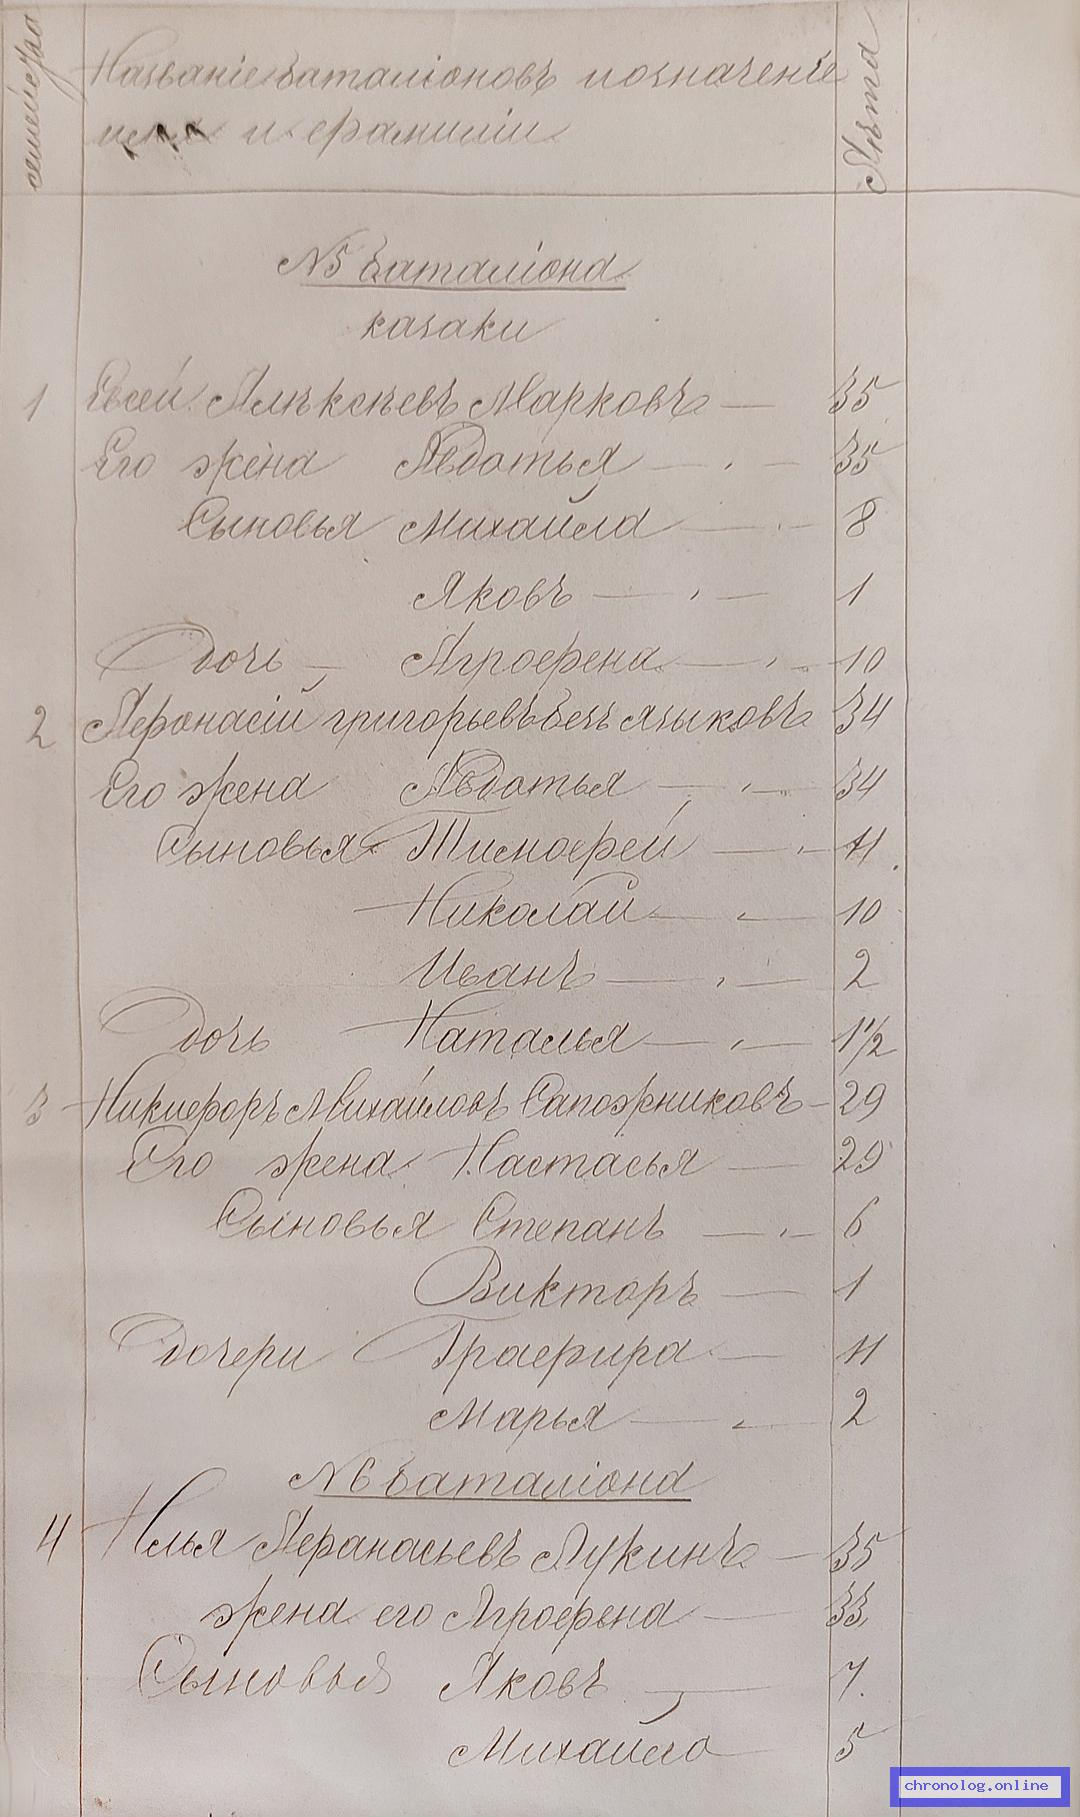 семействo
Названіе баталіоновъ и означеніе
имя и фамиліи
Лѣта
№5 баталіона
казаки
1 Евсей Алѣксѣевъ Марковъ — 35
Его жена Авдотья — 35
Сыновья Михайла — 8
Яковъ — 1
Дочь — Агрофена — 10
2 Афонасій григорьевъ безъязыковъ 34
Его жена Авдотья — 34
Сыновья Тимофей — 11
Николай — 10
Иванъ — 2
Дочь Наталья — 1 1/2
3 Никифоръ Михайловъ Сапожниковъ — 29
Его жена Настасья — 29
Сыновья Степанъ — 6
Викторъ — 1
Дочери Графира — 11
Марья — 2
№6 баталіона
4 Илья Афанасьевъ Лукинъ — 35
жена его Агрофена — 33
Сыновья Яковъ — 7.
Михайло 5
chronolog.online